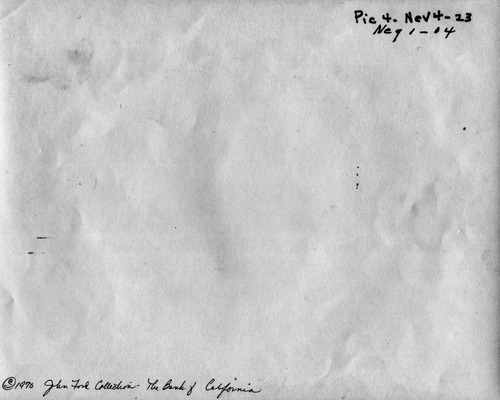 Pic 4. Nev 4-23
Neg 1-04
©1970 John Ford Collection - The Bank of California